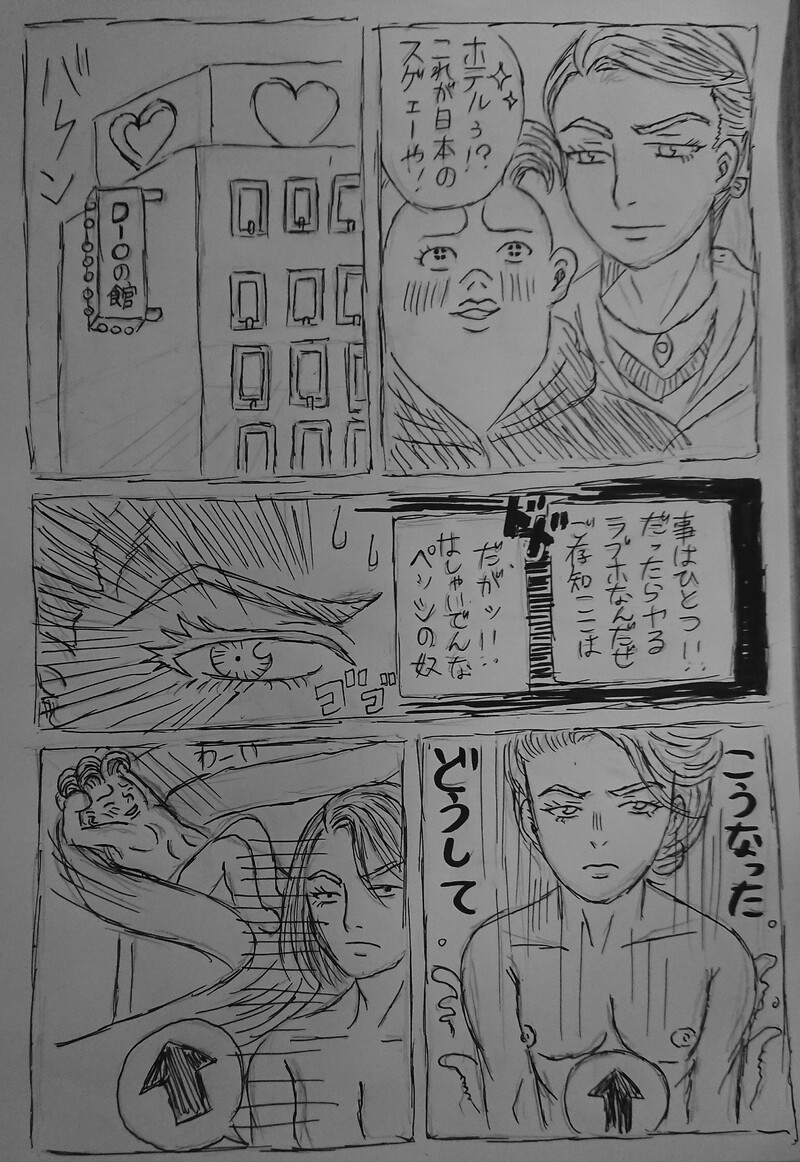 ホテルぅ!?
これが日本の
スゲェーや!
バァーン
D-Oの館
事はひとつ!!
だったらヤる
ラブホなんだぜ
ご存知ここは
ドド
だがッ!!
はしゃいでんな
ペッシの奴
ゴゴ
こうなった
どうして
わーい